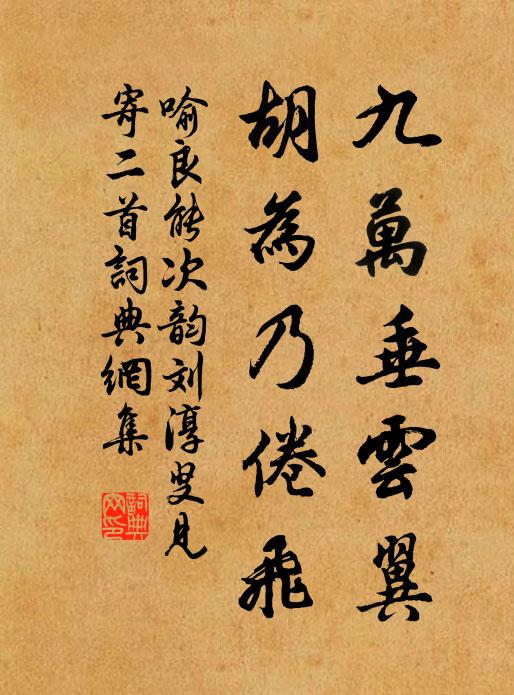 九萬垂雲翼
胡為乃倦飛
喻良能次韵刘淳叟见
寄二首詞典網集
詞典
网印